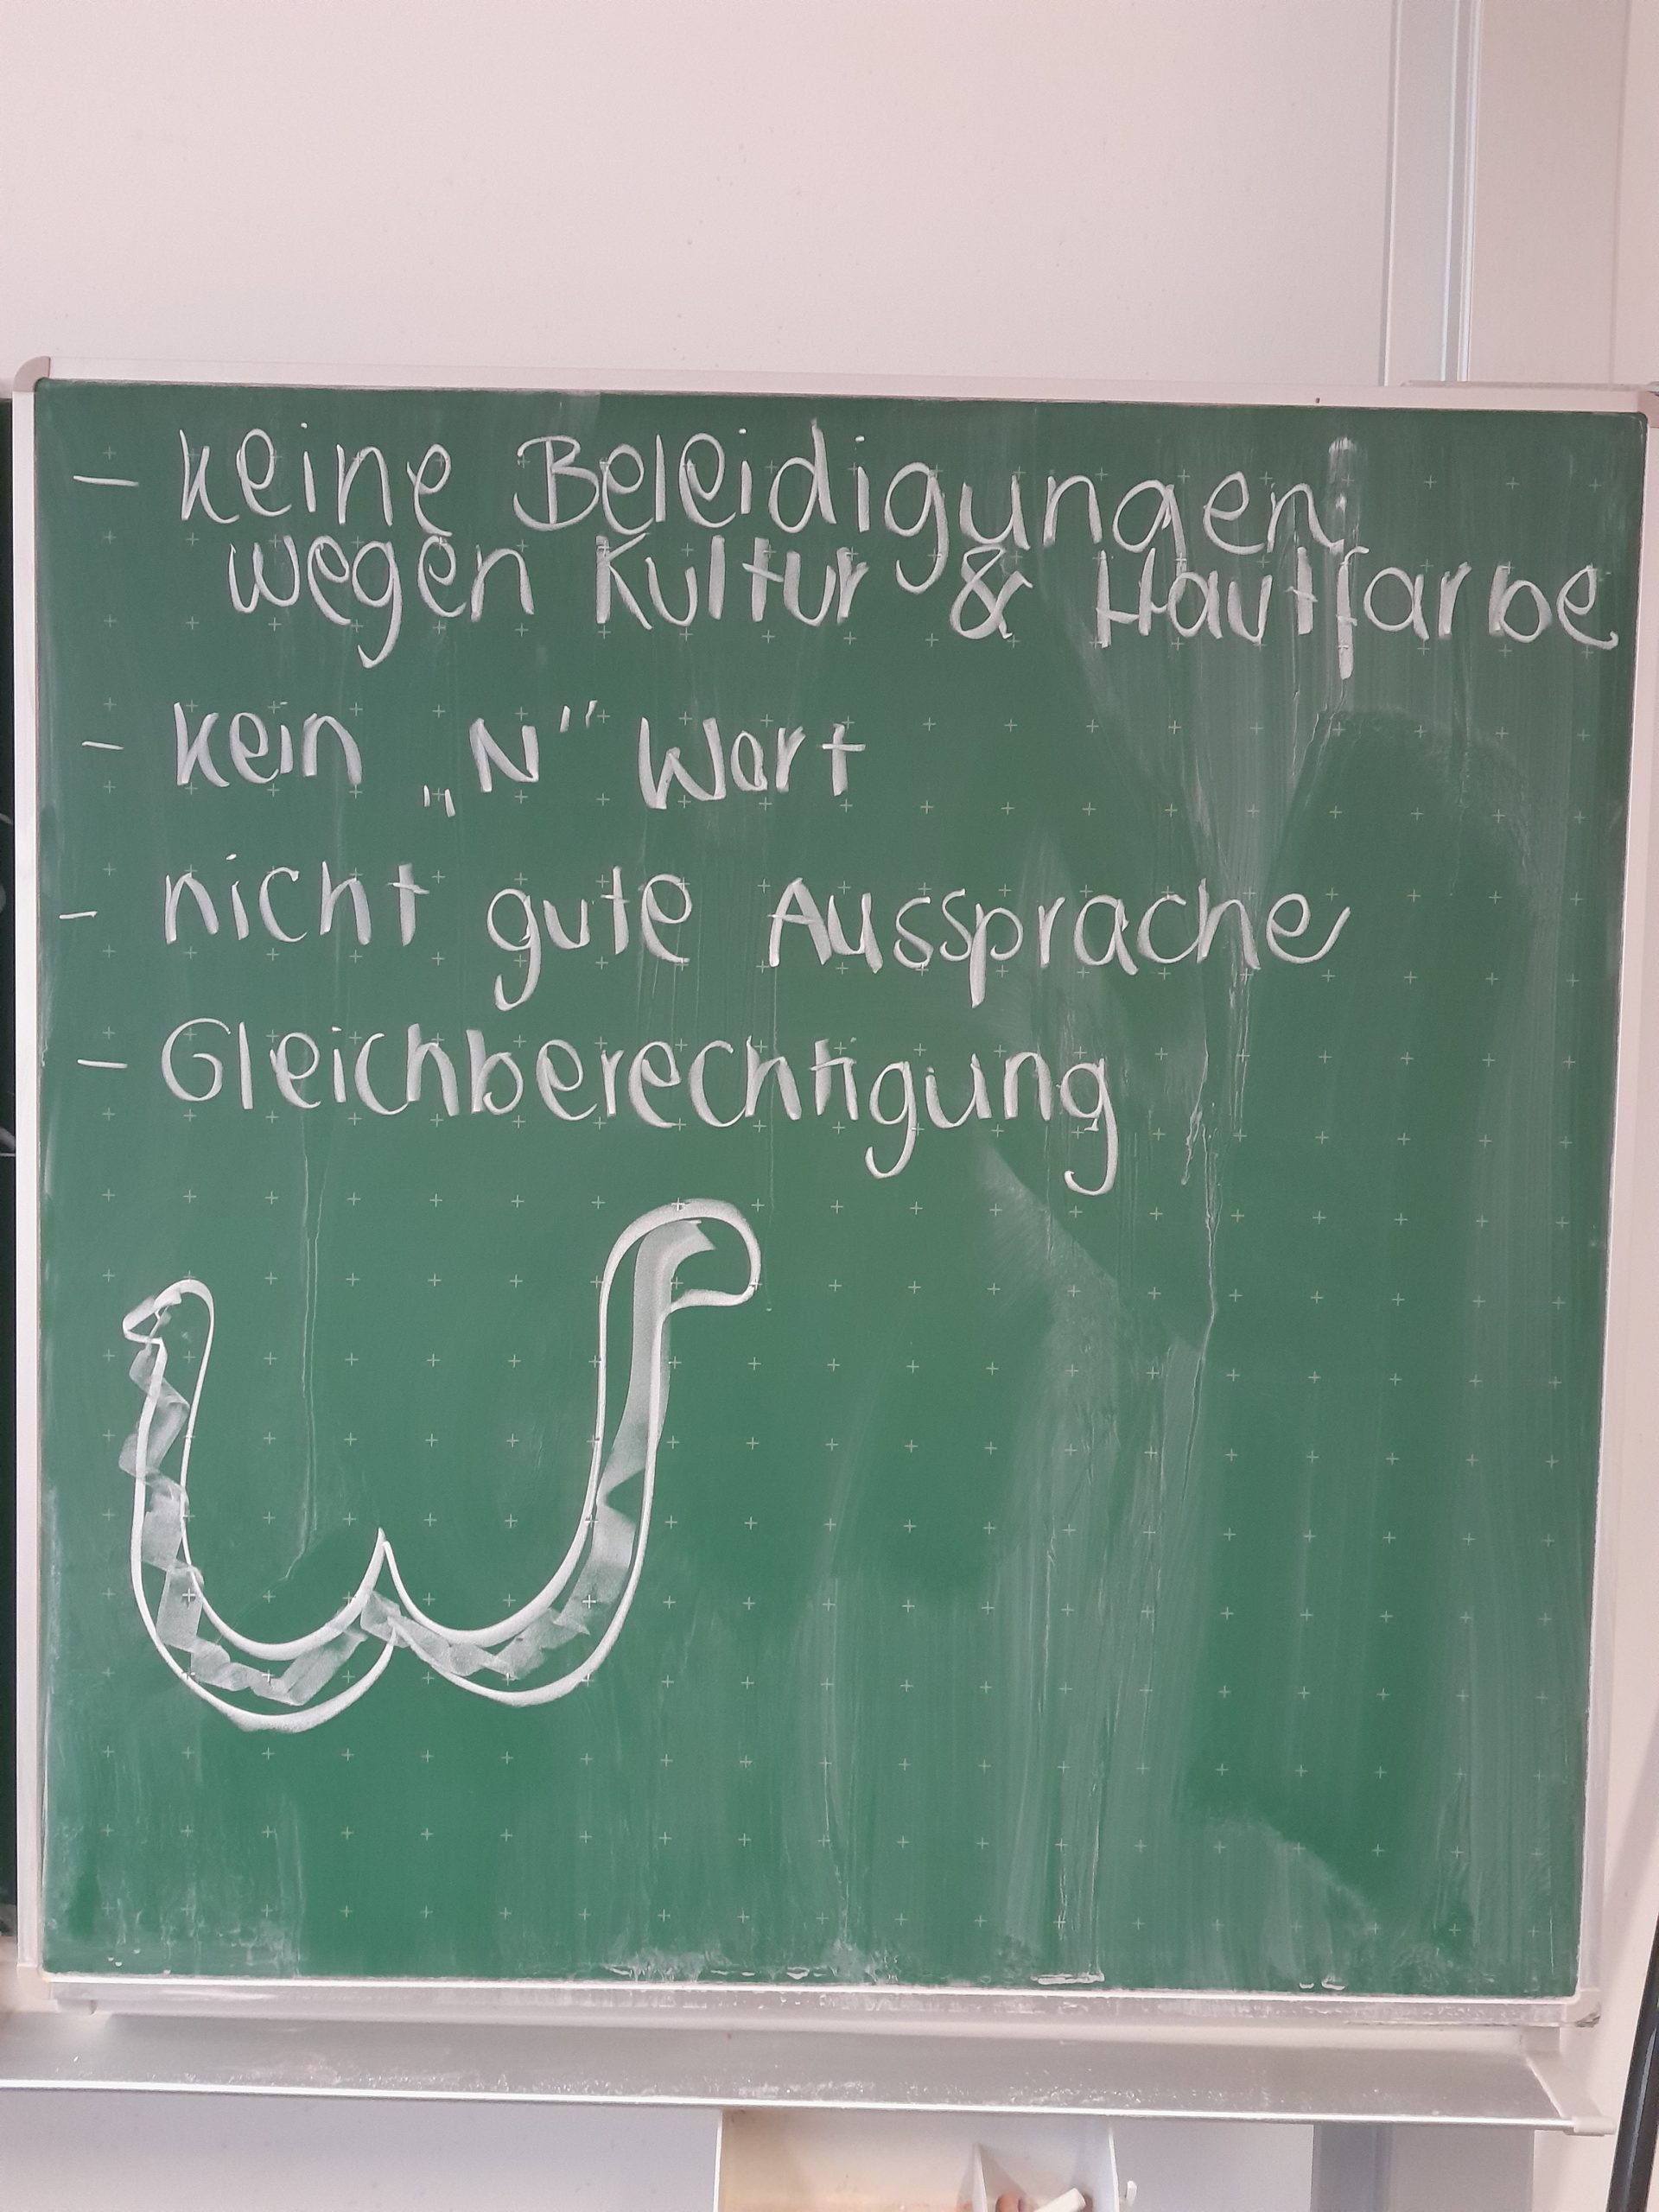 - keine Beleidigungen
wegen Kultur & Hautfarbe
- kein „N" Wort
- nicht gute Aussprache
- Gleichberechtigung